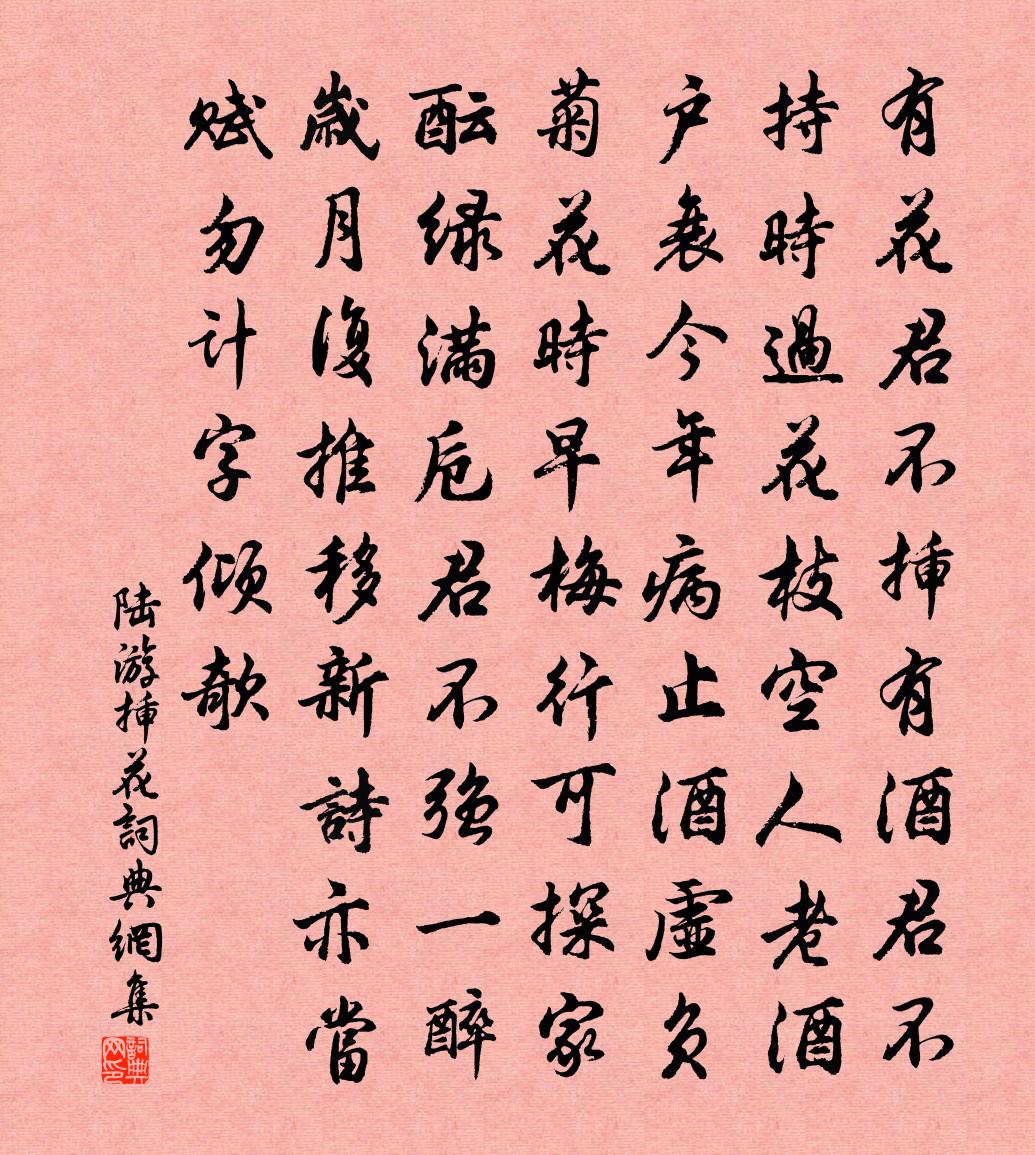 有花君不插有酒君不
持時過花枝空人老酒
户衰今年病止酒虛負
菊花時早梅行可探家
酝绿滿卮君不强一醉
歲月復推移新詩亦當
赋勿计字倾欹
陆游插花詞典網集
詞典网印